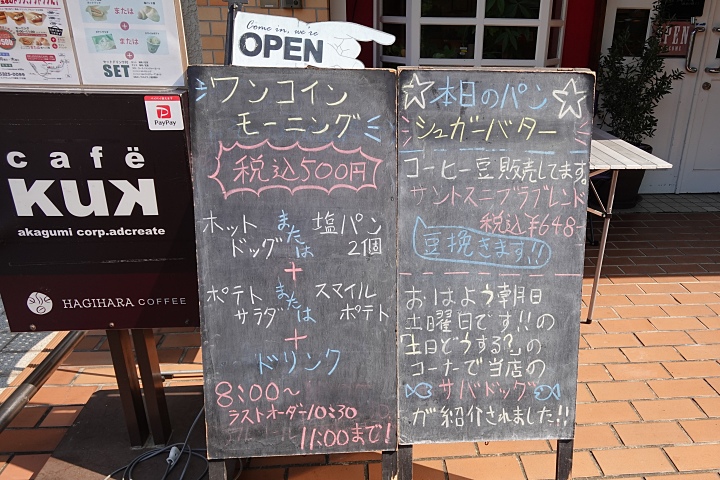 Come in, we're
OPEN
または
または
+
+
SET
PayPay
café
KUK
akagumi corp.adcreate
HAGIHARA COFFEE
ワンコイン
モーニング
税込500円
ホット
ドッグ
または
塩パン
2個
+
ポテト
サラダ
または
スマイル
ポテト
+
ドリンク
8:00〜
ラストオーダー10:30
11:00まで!
☆本日のパン☆
シュガーバター
コーヒー豆販売してます。
サントスニブラブレンド
税込¥648-
豆挽きます!!
おはよう朝日
土曜日です!!の
「土日どうする?」の
コーナーで当店の
サバドッグ
が紹介されました!!
OPEN